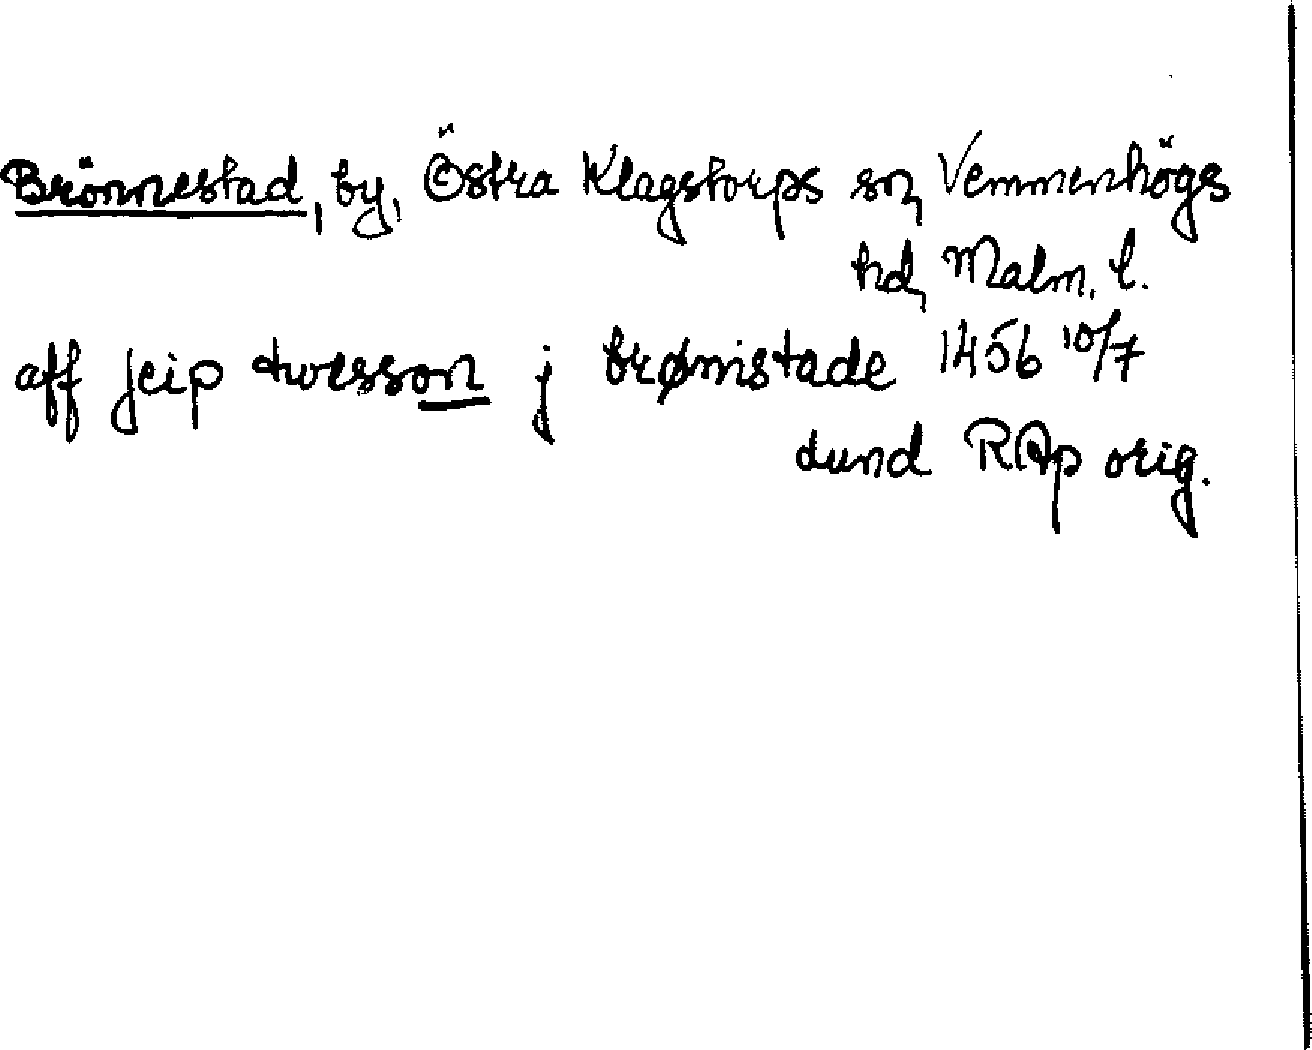 Brönnestad, by, Östra Klagstorps sn, Vemmenhögs
hd, Malm. l.
aff jeip twesson j brømistade 1456 10/7
dund RAp orig.